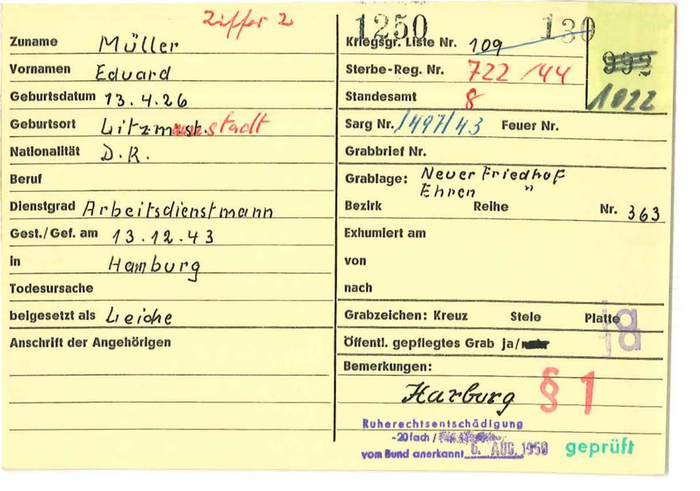 Ziffer 2
1250
130
Zuname Müller
Kriegsgr. Liste Nr. 109
992
Vornamen Eduard
Sterbe-Reg. Nr. 722/44
Geburtsdatum 13.4.26
Standesamt 8
1022
Geburtsort Litzmannstadt
Sarg Nr. /497/43 Feuer Nr.
Nationalität D.R.
Grabbrief Nr.
Beruf
Grablage: Neuer Friedhof
Ehren "
Dienstgrad Arbeitsdienstmann
Bezirk Reihe Nr. 363
Gest./Gef. am 13.12.43
Exhumiert am
in Hamburg
von
Todesursache
nach
beigesetzt als Leiche
Grabzeichen: Kreuz Stele Platte
Anschrift der Angehörigen
Öffentl. gepflegtes Grab ja/
Bemerkungen:
Harburg § 1
Ruherechtsentschädigung
-20fach/
vom Bund anerkannt 6. AUG. 1959 geprüft